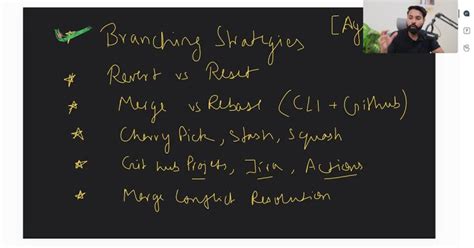 Branching Strategies [Ag
Revert vs Reset
Merge vs Rebase (CLI + Github)
Cherry Pick, Stash, Squash
Git hub Projets, Jira, Actions
Merge Conflict Resolution